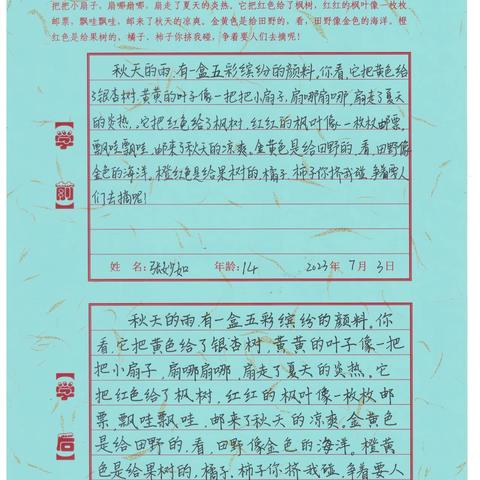 把把小扇子，扇哪扇哪，扇走了夏天的炎热。它把红色给了枫树，红红的枫叶像一枚枚
邮票，飘哇飘哇，邮来了秋天的凉爽。金黄色是给田野的，看，田野像金色的海洋。橙
红色是给果树的，橘子、柿子你挤我碰，争着要人们去摘呢！
【学前】
秋天的雨，有一盒五彩缤纷的颜料。你看，它把黄色给
了银杏树，黄黄的叶子像一把把小扇子，扇哪扇哪，扇走了夏天
的炎热。它把红色给了枫树，红红的枫叶像一枚枚邮票，
飘哇飘哇，邮来了秋天的凉爽。金黄色是给田野的，看，田野像
金色的海洋。橙红色是给果树的，橘子、柿子你挤我碰，争着要人
们去摘呢！
姓名：张妙如 年龄：14 2023年7月3日
【学后】
秋天的雨，有一盒五彩缤纷的颜料。你
看，它把黄色给了银杏树，黄黄的叶子像一把
把小扇子，扇哪扇哪，扇走了夏天的炎热。它
把红色给了枫树，红红的枫叶像一枚枚邮
票，飘哇飘哇，邮来了秋天的凉爽。金黄色
是给田野的，看，田野像金色的海洋。橙黄
色是给果树的，橘子、柿子你挤我碰，争着要人